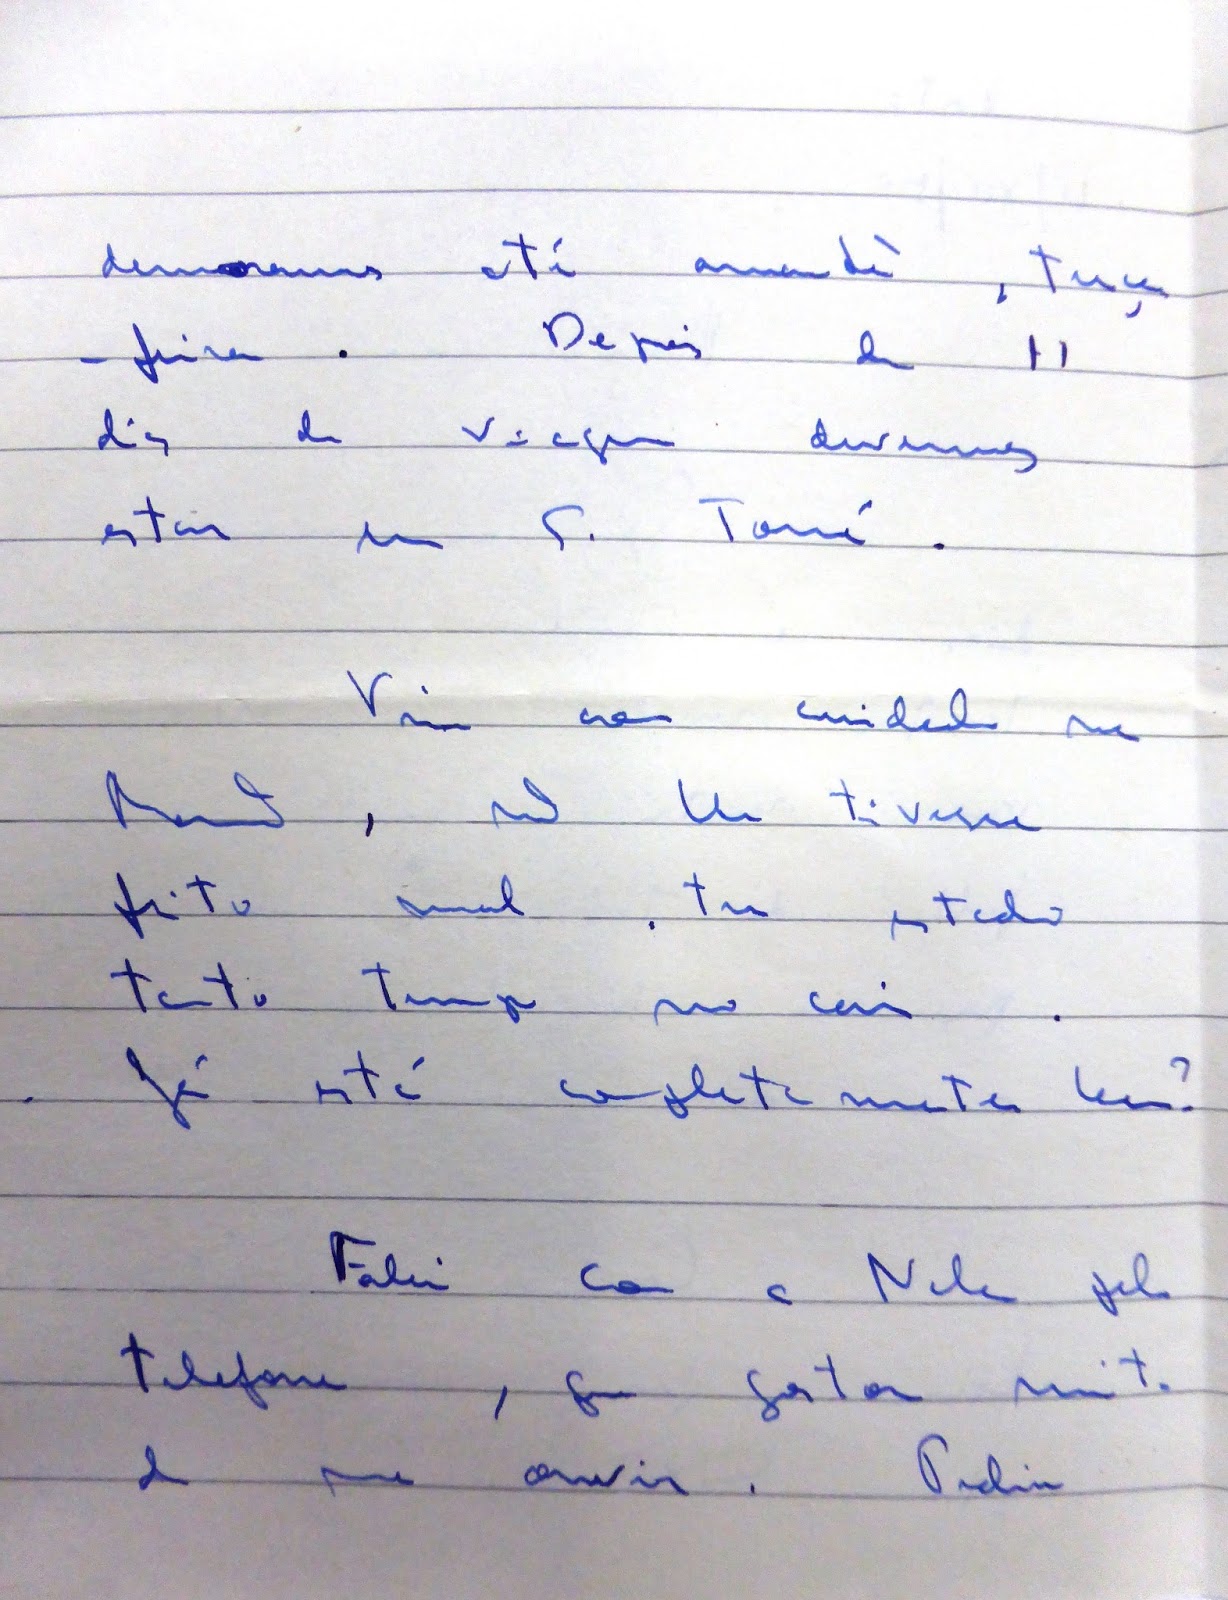 demoramos até amanhã, terça
-feira. Depois de 11
dias de viagem devemos
estar em S. Tomé.
Vim com cuidado na
, não lhe tivesse
feito mal, ter estado
tanto tempo no cais.
Já está completamente bem?
Falei com a Nela pelo
telefone, que gostou muito
de me ouvir. Pediu